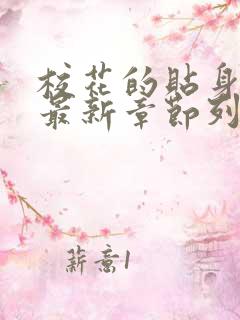 校花的贴身
最新章节列
薪意1